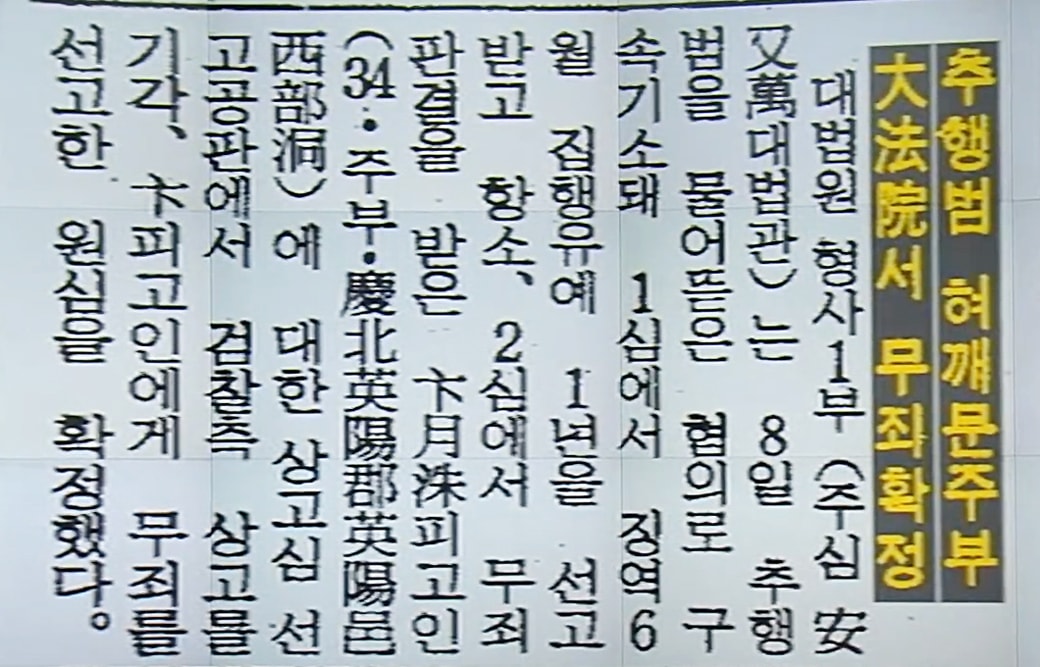 추행범 혀깨문주부
大法院서 무죄확정
대법원 형사1부 (주심 安
又萬대법관)는 8일 추행
범을 물어뜯은 혐의로 구
속기소돼 1심에서 징역6
월 집행유예 1년을 선고
받고 항소、 2심에서 무죄
판결을 받은 卞月洙피고인
(34・주부・慶北英陽郡英陽邑
西部洞)에 대한 상고심 선
고공판에서 검찰측 상고를
기각、 卞피고인에게 무죄를
선고한 원심을 확정했다。